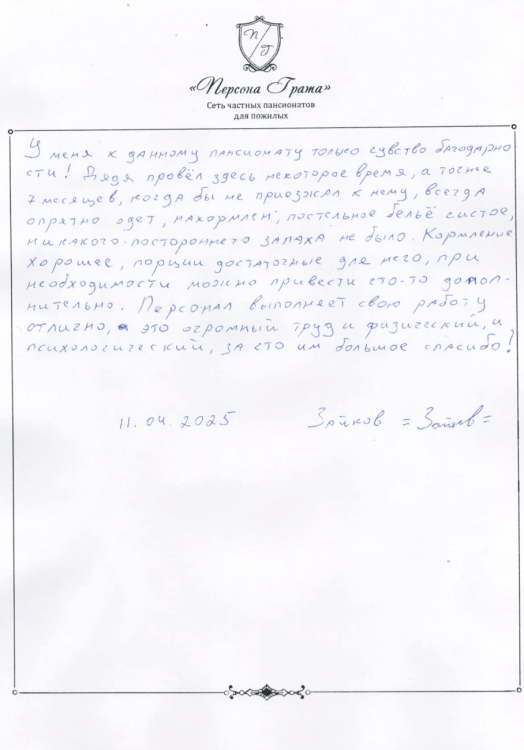 П Г
«Персона Грата»
Сеть частных пансионатов
для пожилых
У меня к данному пансионату только чувство благодарно
сти! Дядя провёл здесь некоторое время, а точнее
7 месяцев, когда бы не приезжал к нему, всегда
опрятно одет, накормлен, постельное бельё чистое,
никакого постороннего запаха не было. Кормление
хорошее, порции достаточные для него, при
необходимости можно привести что-то допол-
нительно. Персонал выполняет свою работу
отлично, это огромный труд и физический, и
психологический, за что им большое спасибо!
11.04.2025 Зайков =Зайков=